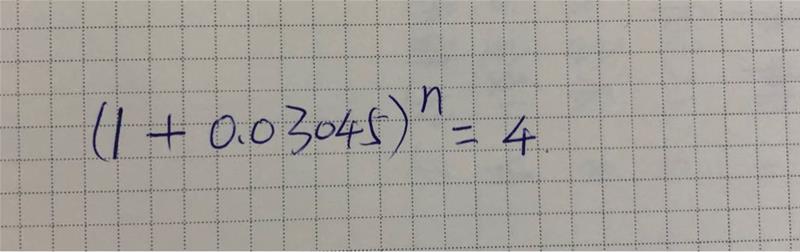 (1 + 0.03045)^n = 4